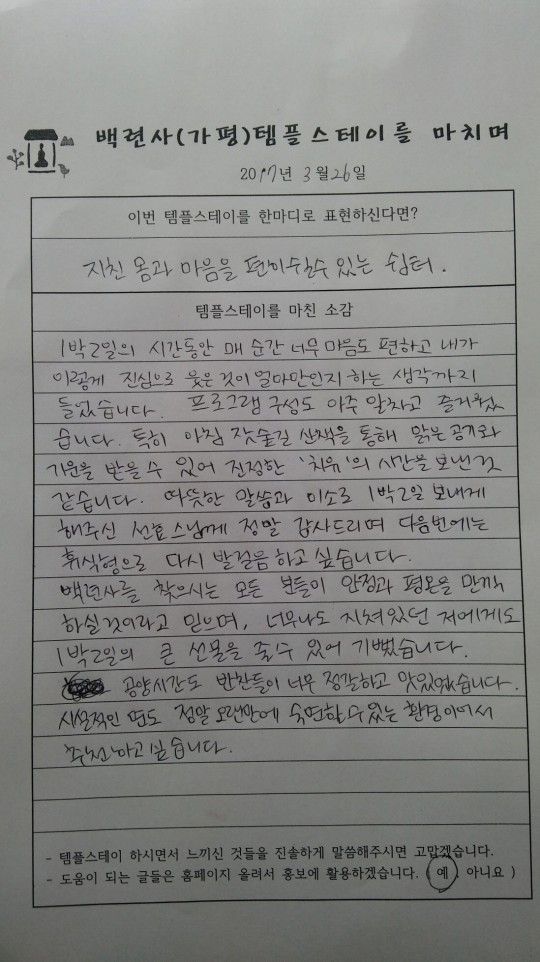 백련사(가평)템플스테이를 마치며
2017년 3월 26일
이번 템플스테이를 한마디로 표현하신다면?
지친 몸과 마음을 편이쉴수 있는 쉼터.
템플스테이를 마친 소감
1박2일의 시간동안 매 순간 너무 마음도 편하고 내가
이렇게 진심으로 웃은 것이 얼마만인지 하는 생각까지
들었습니다. 프로그램 구성도 아주 알차고 즐거웠
습니다. 특히 아침 잣숲길 산책을 통해 맑은 공기와
기운을 받을 수 있어 진정한 '치유'의 시간을 보낸것
같습니다. 따뜻한 말씀과 미소로 1박2일 보내게
해주신 선효스님께 정말 감사드리며 다음번에는
휴식형으로 다시 발걸음하고 싶습니다.
백련사를 찾으시는 모든 분들이 안정과 평온을 만끽
하실것이라고 믿으며, 너무나도 지쳐있던 저에게도
1박2일의 큰 선물을 줄수 있어 기뻤습니다.
공양시간도 반찬들이 너무 정갈하고 맛있었습니다.
시설적인 면도 정말 오랜만에 숙면할수있는 환경이어서
추천하고 싶습니다.
- 템플스테이 하시면서 느끼신 것들을 진솔하게 말씀해주시면 고맙겠습니다.
- 도움이 되는 글들은 홈페이지 올려서 홍보에 활용하겠습니다. ( 예 아니요 )